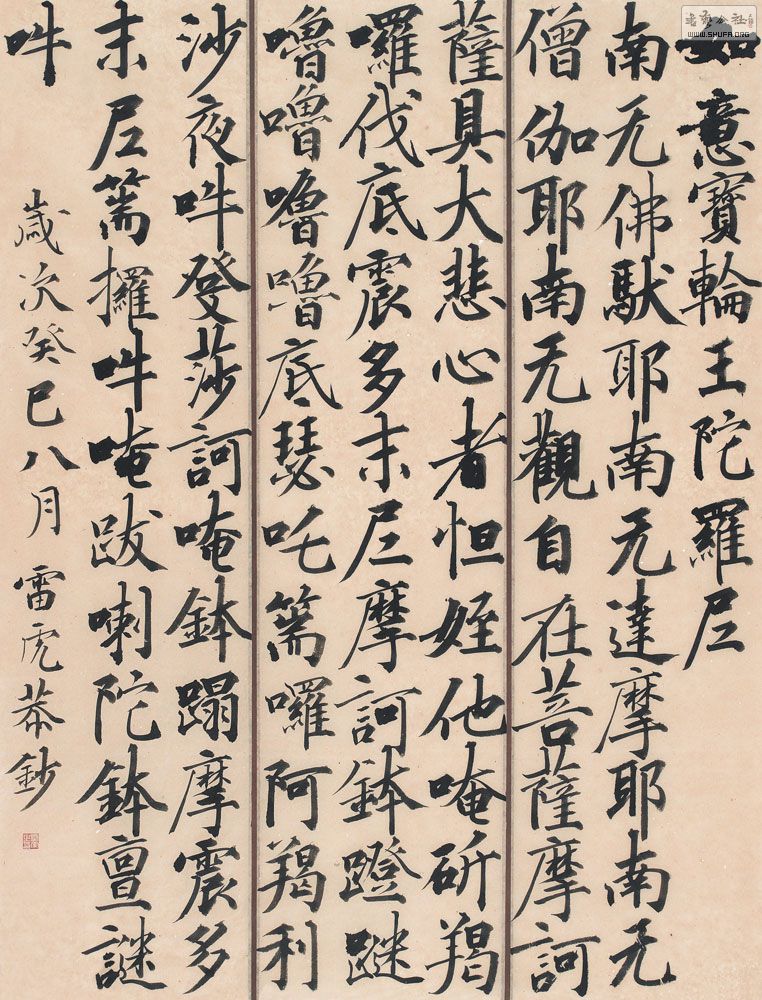 如意寶輪王陀羅尼
南无佛馱耶南无達摩耶南无
僧伽耶南无觀自在菩薩摩訶
薩具大悲心者怛姪他唵斫羯
囉伐底震多末尼摩訶鉢蹬
嚕嚕嚕嚕底瑟吒篅囉阿羯利
沙夜吽癹莎訶唵鉢蹋摩震多
末尼篅攞吽唵跋喇陀鉢亶謎
吽
歲次癸巳八月雷虎恭鈔
書法公社
WWW.SHUFA.ORG